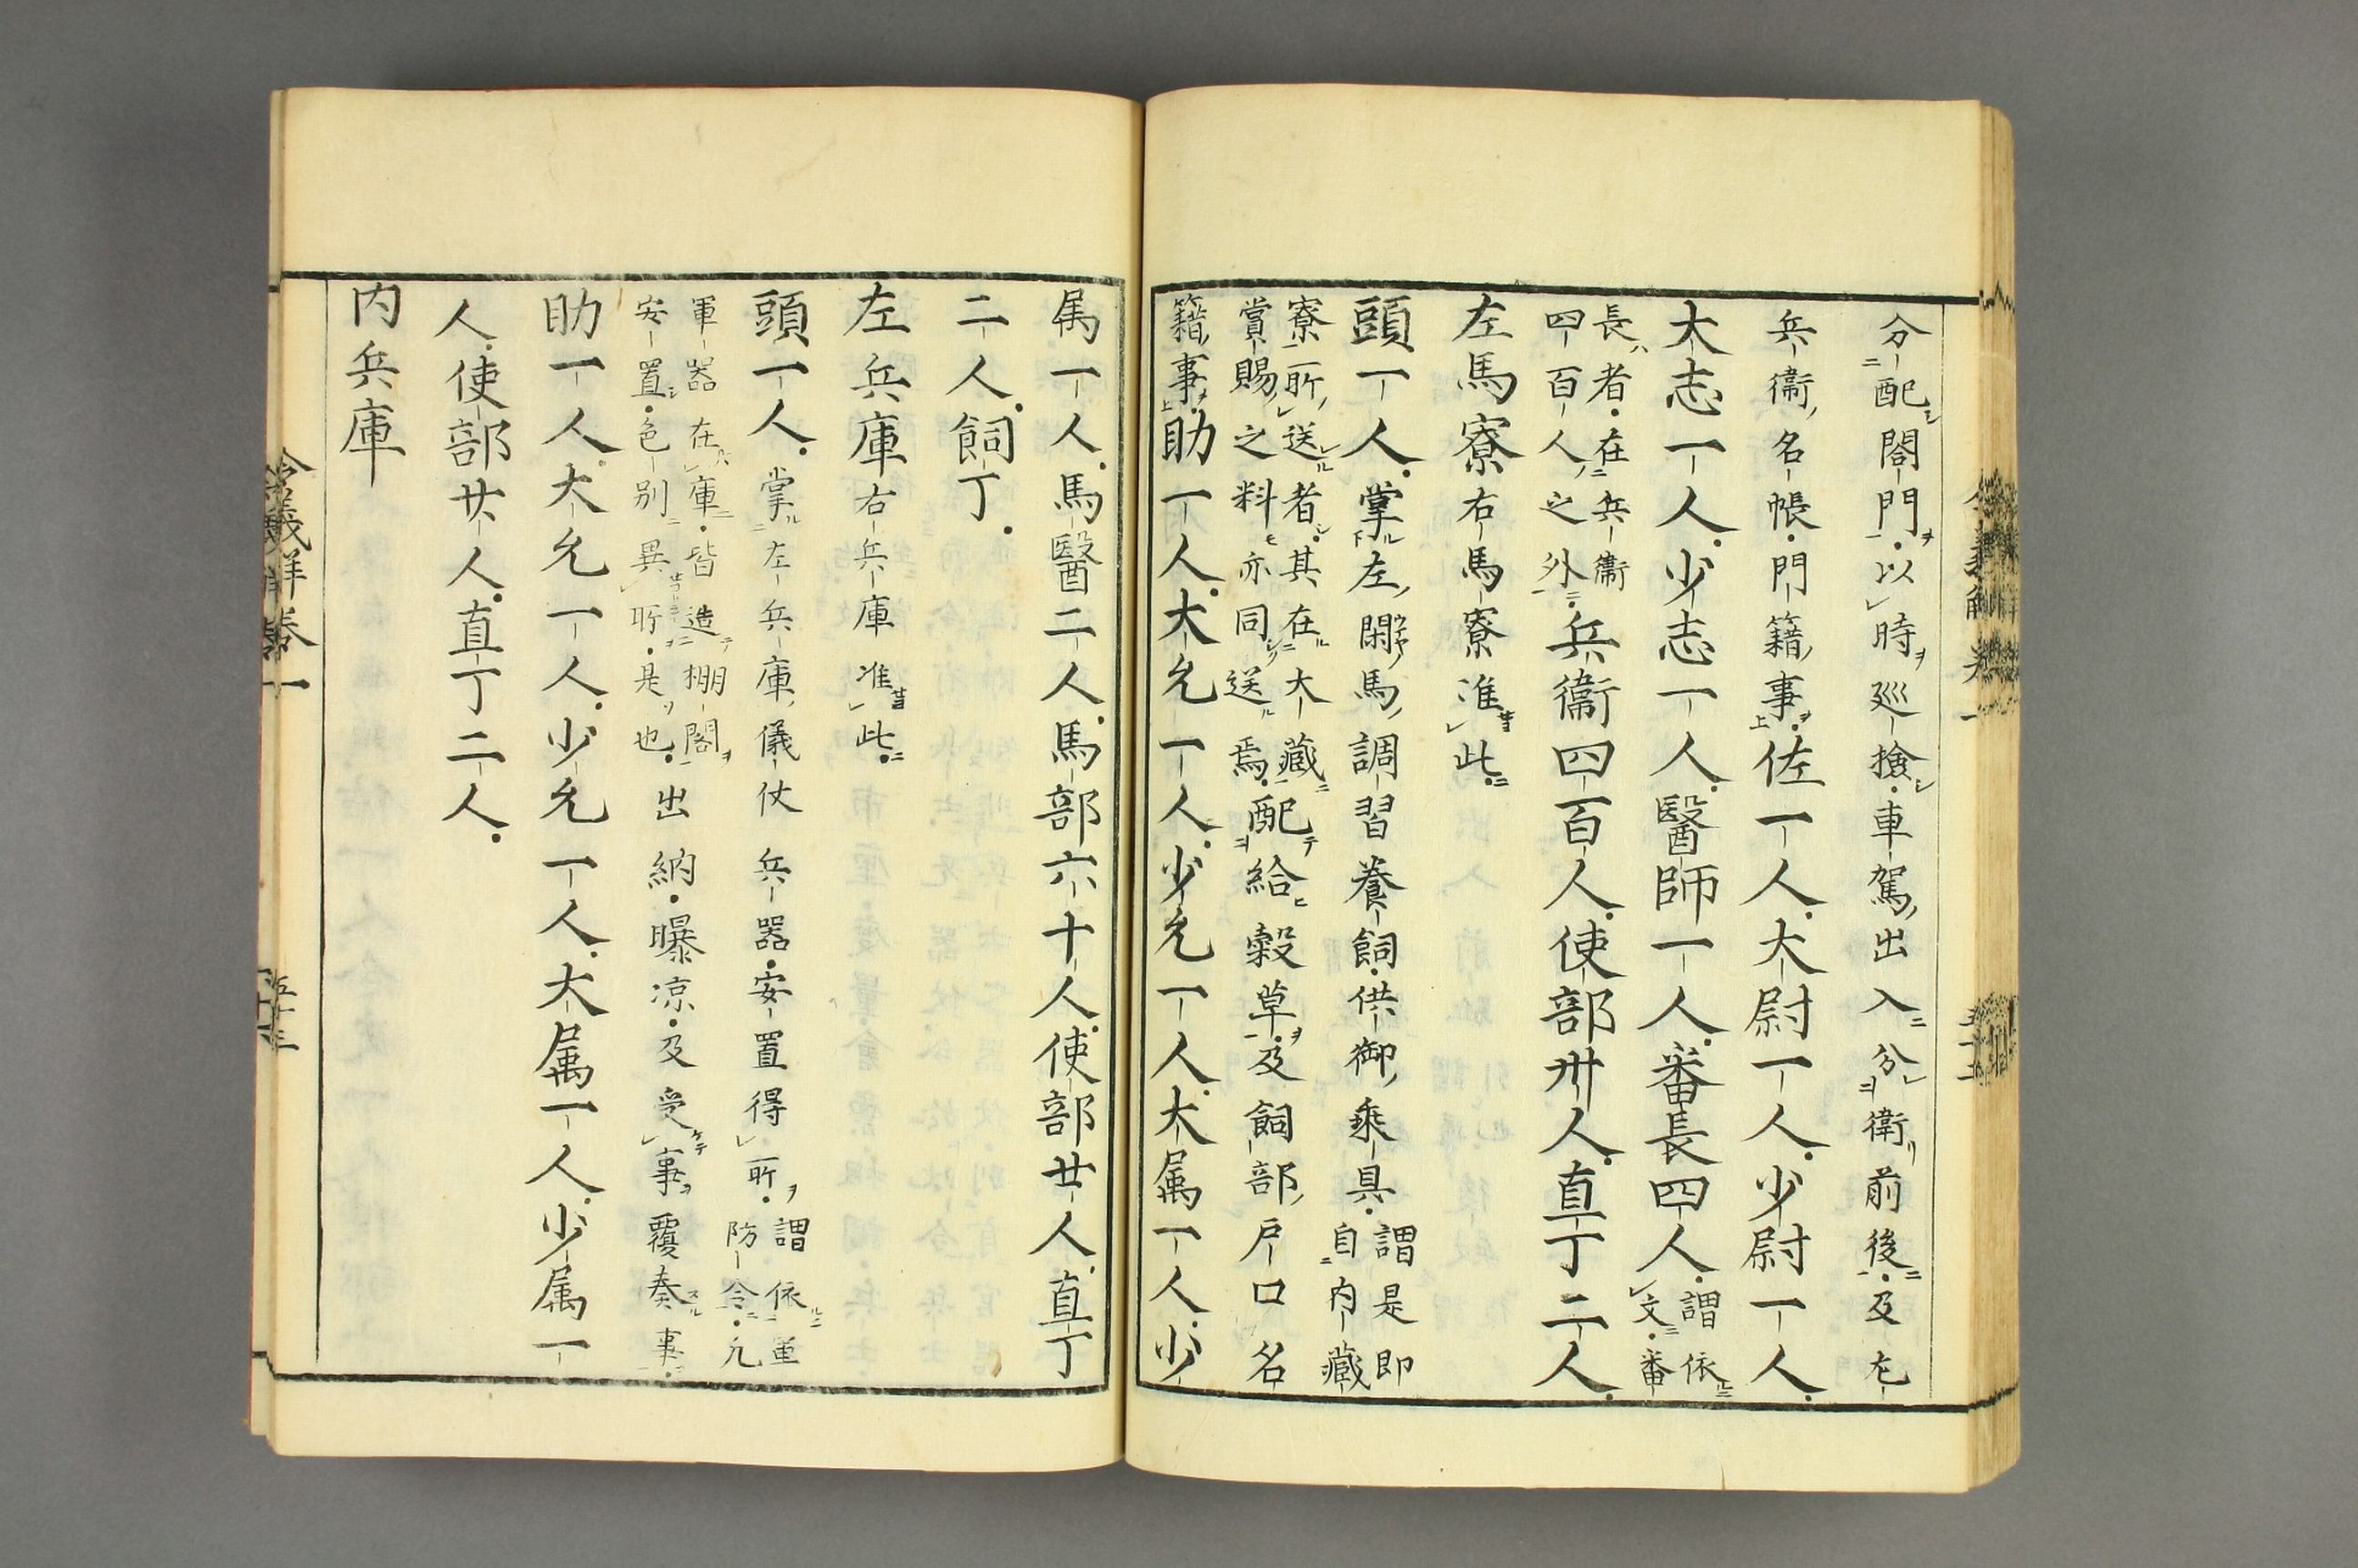 分配閤門以時巡撿車駕出入分衛前後及左
兵衞名帳門籍事佐一人大尉一人少尉一人
大志一人少志一人醫師一人番長四人謂依文番
長者在兵衞四百人之外兵衞四百人使部卅人直丁二人
左馬寮右馬寮准此
頭一人掌左閑馬調習養飼供御乘具謂是即自內藏
寮所送者其在大藏賞賜之料亦同送焉配給穀草及飼部戶口名
籍事助一人大允一人少允一人大属一人少
属一人馬醫二人馬部六十人使部廿人直丁
二人飼丁
左兵庫右兵庫准此
頭一人掌左兵庫儀仗兵器安置得所謂依軍防令凢
軍器在庫皆造棚閣安置色別異所是也出納曝凉及受事覆奏事
助一人大允一人少允一人大属一人少属一
人使部廿人直丁二人
内兵庫
令義解卷一
五十三